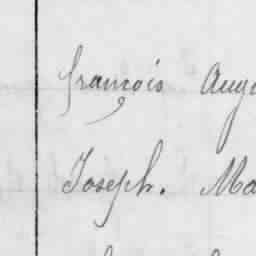 françois Aug
Joseph. Ma